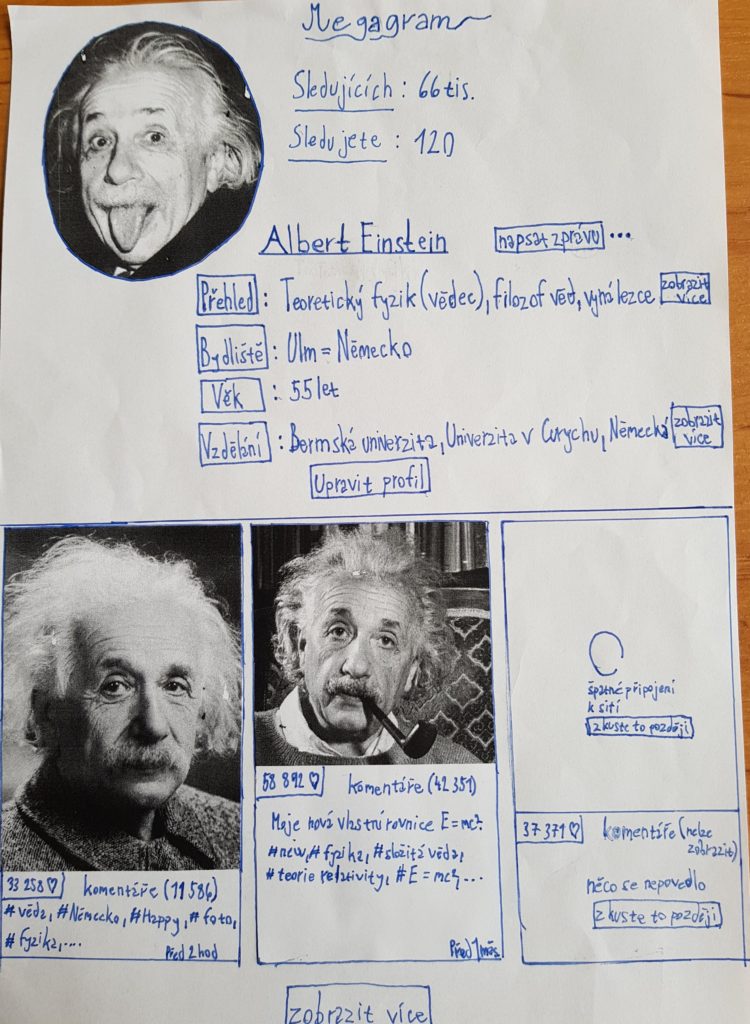 Megagram
Sledujících : 66 tis.
Sledujete : 120
Albert Einstein napsat zprávu ...
Přehled : Teoretický fyzik (vědec), filozof věd, vynálezce zobrazit více
Bydliště : Ulm = Německo
Věk : 55 let
Vzdělání : Bernská univerzita, Univerzita v Curychu, Německá zobrazit více
Upravit profil
33 258 ♡ komentáře (11 586)
#věda, #Německo, #Happy, #foto,
#fyzika,....
Před 2 hod
58 892 ♡ komentáře (42 351)
Moje nová vlastní rovnice E=mc².
#new, #fyzika, #složitá věda,
#teorie relativity, #E=mc² ...
Před 1 měs.
špatné připojení
k síti
zkuste to později
37 371 ♡ komentáře (nelze
zobrazit)
něco se nepovedlo
zkuste to později
zobrazit více